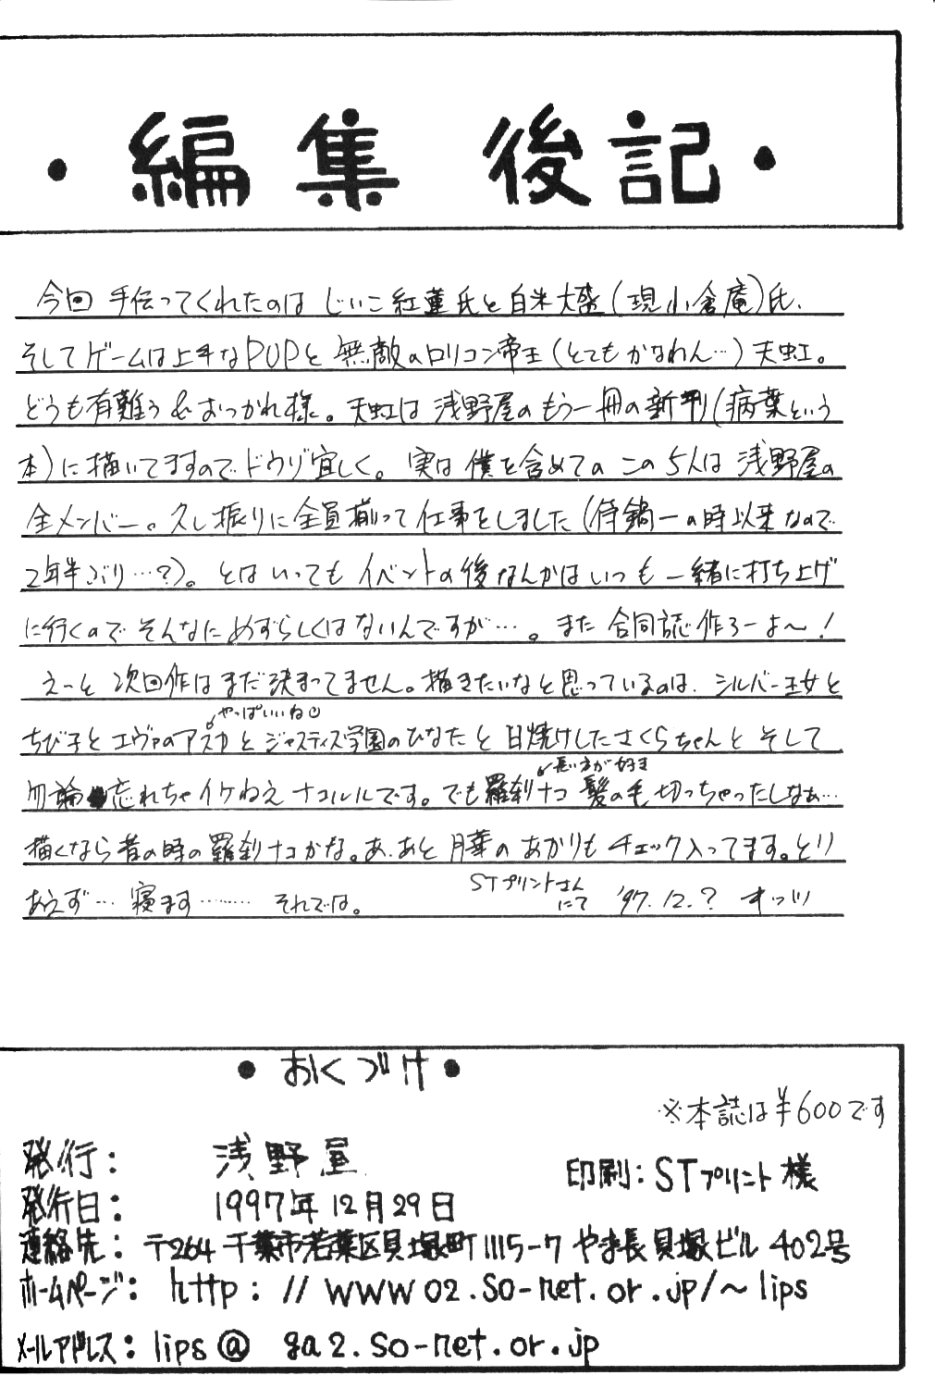 ・編集後記・
今回手伝ってくれたのはじいこ紅蓮氏と白米大盛(現小倉庵)氏、
そしてゲームは上手なPUPと無敵のロリコン帝王(とてもかなわん…)天虹。
どうも有難う&おつかれ様。天虹は浅野屋のもう一冊の新刊(病葉という
本)に描いてますのでドウゾ宜しく。実は僕を含めてのこの5人は浅野屋の
全メンバー。久し振りに全員揃って仕事をしました(侍鍋一の時以来なので
2年半ぶり…?)。とはいってもイベントの後なんかはいつも一緒に打ち上げ
に行くのでそんなにめずらしくはないんですが…。また合同誌作ろーよ～!
えっと次回作はまだ決まってません。描きたいなと思っているのは、シルバー王女と
やっぱいいね
ちび子とエヴァのアスカとジャスティス学園のひなたと日焼けしたさくらちゃんとそして
長い方が好き
勿論忘れちゃイケねえナコルルです。でも羅刹ナコ髪の毛切っちゃったしなぁ…
描くなら昔の時の羅刹ナコかな。あ、あと月華のあかりもチェック入ってます。とり
あえず…寝ます……… それでは。 STプリントさんにて '97.12.?
・おくづけ・
※本誌は¥600です
発行: 浅野屋
印刷:STプリント様
発行日: 1997年12月29日
連絡先: 〒264 千葉市若葉区貝塚町1115-7 やま長貝塚ビル402号
ホームページ: http://www02.so-net.or.jp/~lips
メールアドレス: lips@ga2.so-net.or.jp